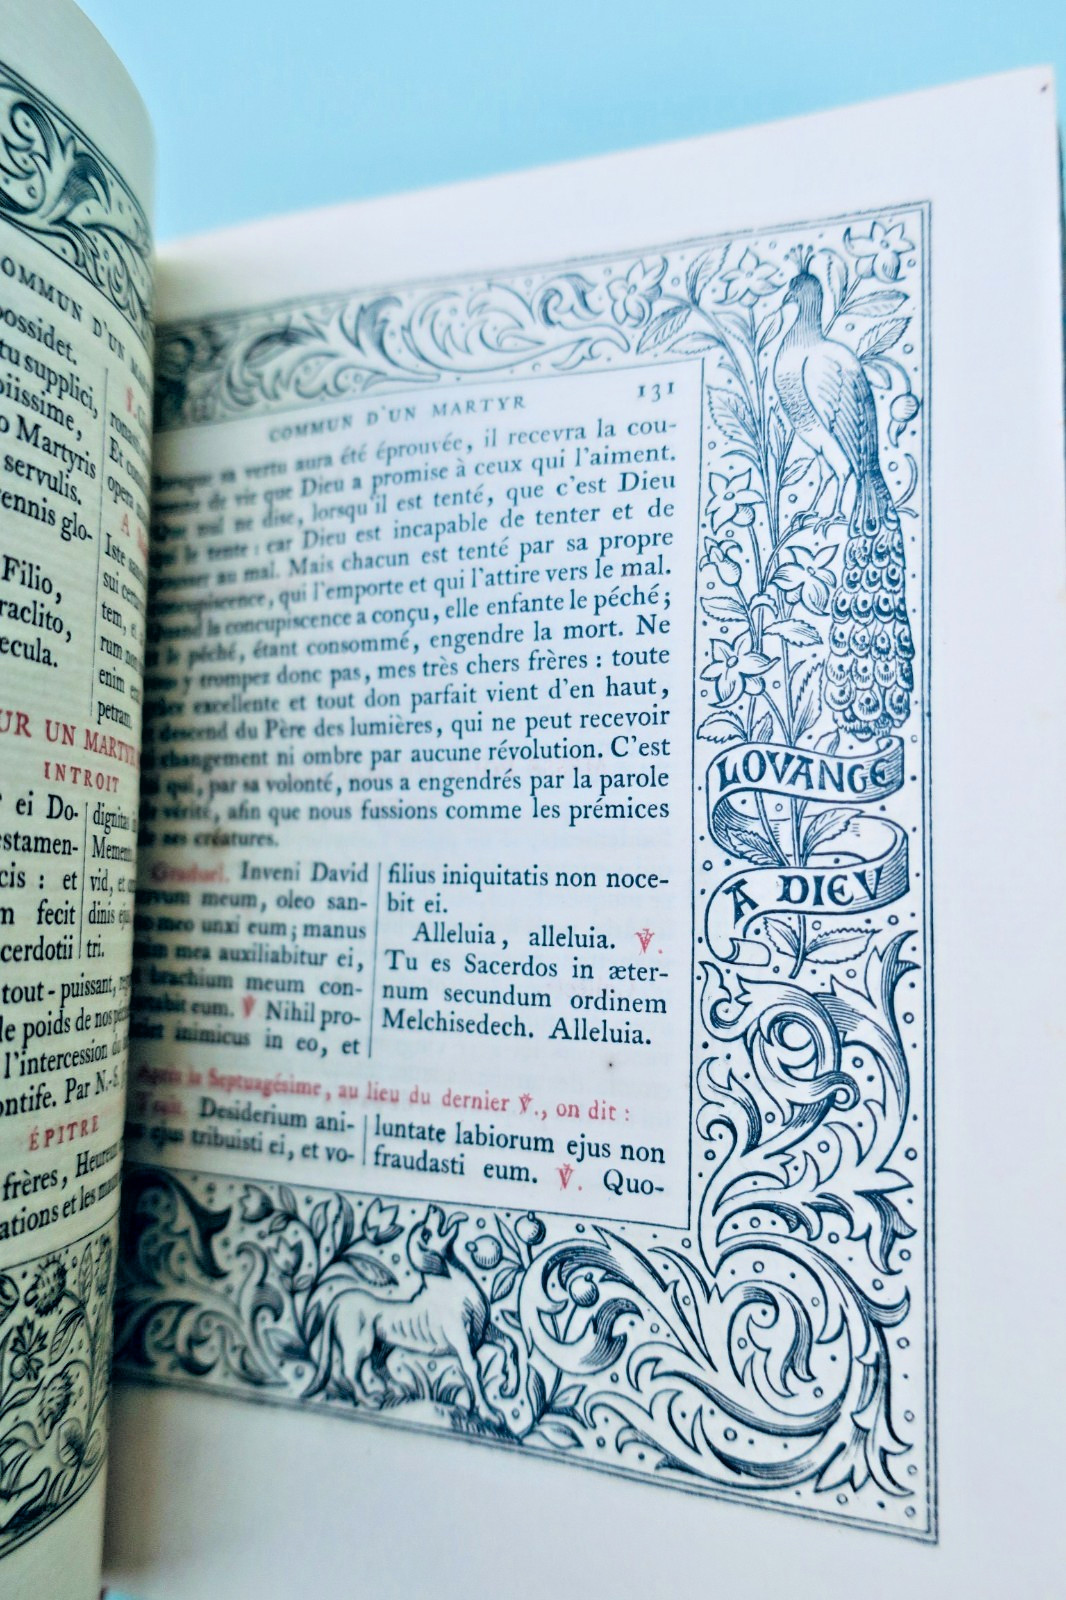 COMMUN D'UN
possidet.
tu supplici,
piissime,
o Martyris
servulis.
ennis glo-
Filio,
raclito,
ecula.
UR UN MARTYR
INTROIT
ei Do-
estamen-
cis : et
m fecit
cerdotii
dignitas
Memen
vid, et
dinis
tri.
tout-puissant,
le poids de nos
l'intercession
ontife. Par N.-S.
ÉPITRE
frères, Heureux
ations et les
Et
opera
Iste
sui
tem,
rum
enim
petram.
COMMUN D'UN MARTYR 131
sa vertu aura été éprouvée, il recevra la cou-
de vie que Dieu a promise à ceux qui l'aiment.
Que nul ne dise, lorsqu'il est tenté, que c'est Dieu
le tente : car Dieu est incapable de tenter et de
au mal. Mais chacun est tenté par sa propre
concupiscence, qui l'emporte et qui l'attire vers le mal.
Quand la concupiscence a conçu, elle enfante le péché ;
le péché, étant consommé, engendre la mort. Ne
y trompez donc pas, mes très chers frères : toute
excellente et tout don parfait vient d'en haut,
descend du Père des lumières, qui ne peut recevoir
changement ni ombre par aucune révolution. C'est
qui, par sa volonté, nous a engendrés par la parole
vérité, afin que nous fussions comme les prémices
ses créatures.
Graduel. Inveni David
meum, oleo san-
meo unxi eum ; manus
mea auxiliabitur ei,
brachium meum con-
eum. ℣ Nihil pro-
inimicus in eo, et
filius iniquitatis non noce-
bit ei.
Alleluia, alleluia. ℣.
Tu es Sacerdos in æter-
num secundum ordinem
Melchisedech. Alleluia.
Après la Septuagésime, au lieu du dernier ℣., on dit :
Desiderium ani-
ejus tribuisti ei, et vo-
luntate labiorum ejus non
fraudasti eum. ℣. Quo-
LOVANGE
A DIEV